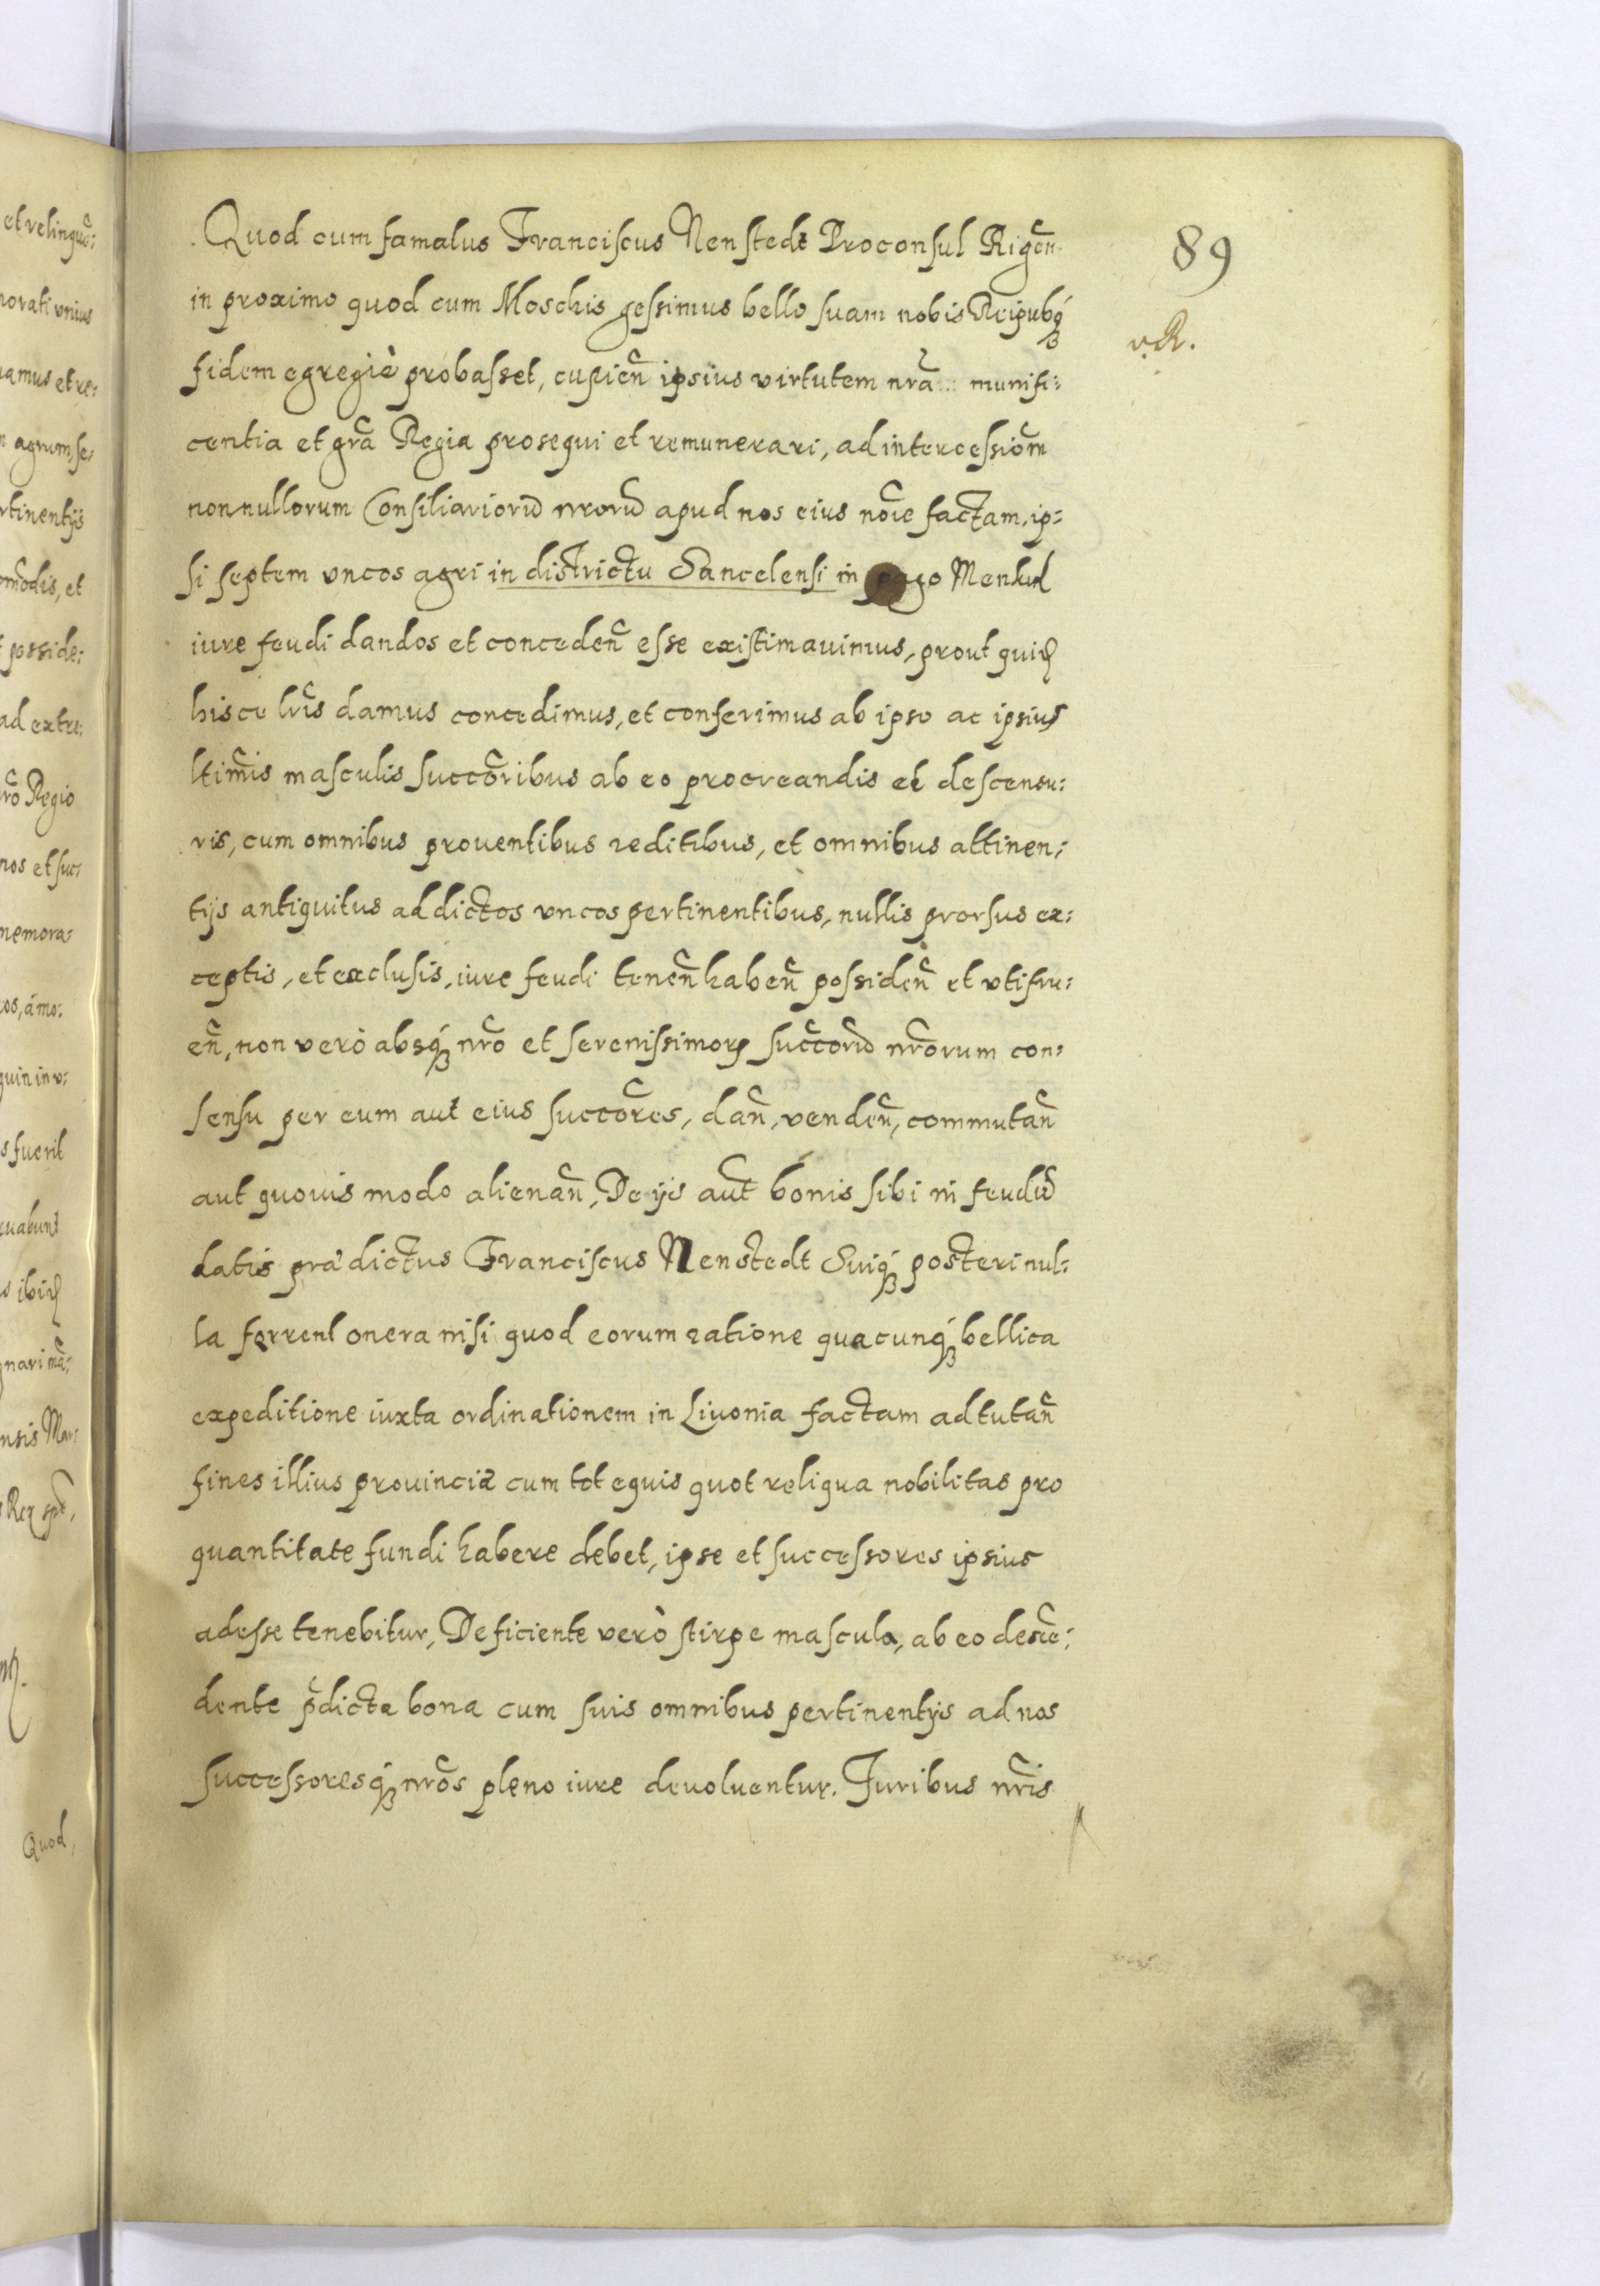 et relinquẽ:
89
v.R.
Quod cum famalus Franciscus Nenstede Proconsul Rigen̄.
in proximo quod cum Moschis gessimus bello suam nobis Reipubq́ꝫ
fidem egregiè probasset, cupien̄ ipsius virtutem nrã munifi:
centia et grã Regia prosequi et remunerari, ad intercession̄m
nonnullorum Consiliariorũ nrorũ apud nos eius nõie factam, ip:
si septem vncos agri in districtu Sancelensi in pago Menkul
iure feudi dandos et conceden̄ esse existimauimus, prout quiđ
hisce lr̃is damus concedimus, et conferimus ab ipso ac ipsius
ltimis̃ masculis succõribus ab eo procreandis et descensu:
ris, cum omnibus prouentibus reditibus, et omnibus attinen:
tijs antiquitus ad dictos vncos pertinentibus, nullis prorsus ex:
ceptis, et exclusis, iure feudi tenen̄ haben̄ possiden̄ et vtifru:
en̄, non verò absq́ꝫ nr̃o et serenissimorꝝ succorũ nr̃orum con:
sensu per eum aut eius succõres, dan̄, venden̄, commutan̄
aut quouis modo alienan̄, De ijs aũt bonis sibi in feudũ
datis prædictus Franciscus Nenstedt Suiq́ꝫ posteri nul:
la ferrent onera nisi quod eorum ratione quacunq́ꝫ bellica
expeditione iuxta ordinationem in Liuonia factam ad tutan̄
fines illius prouinciæ cum tot equis quot reliqua nobilitas pro
quantitate fundi habere debet, ipse et successores ipsius
adesse tenebitur, Deficiente verò stirpe mascula, ab eo descẽ:
dente p̃dicta bona cum suis omnibus pertinentijs ad nos
successoresq́ꝫ nr̃os pleno iure deuoluentur. Juribus nr̃is
Quod,